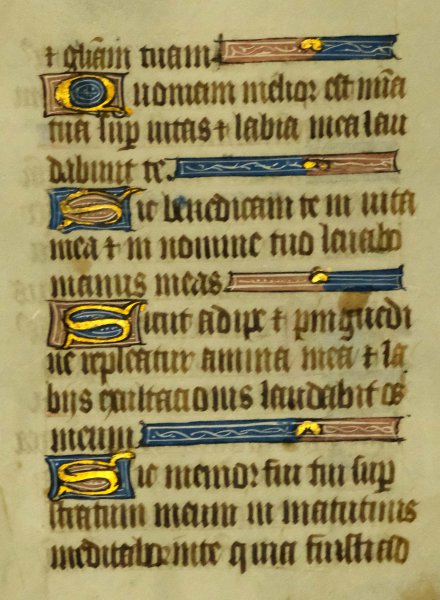 ⁊ gl̄iam tuam
Quoniam melior est mīa
tua suꝑ uitas ⁊ labia mea lau
dabunt te.
Sic benedicam te in uita
mea ⁊ in nomine tuo leuabo
manus meas.
Sicut adipe ⁊ pinguedi
ne repleatur anima mea ⁊ la
bijs exultacionis laudabit os
meum
Sic memor fui tui suꝑ
stratum meum in matutinis
meditabor in te quia fuisti ad